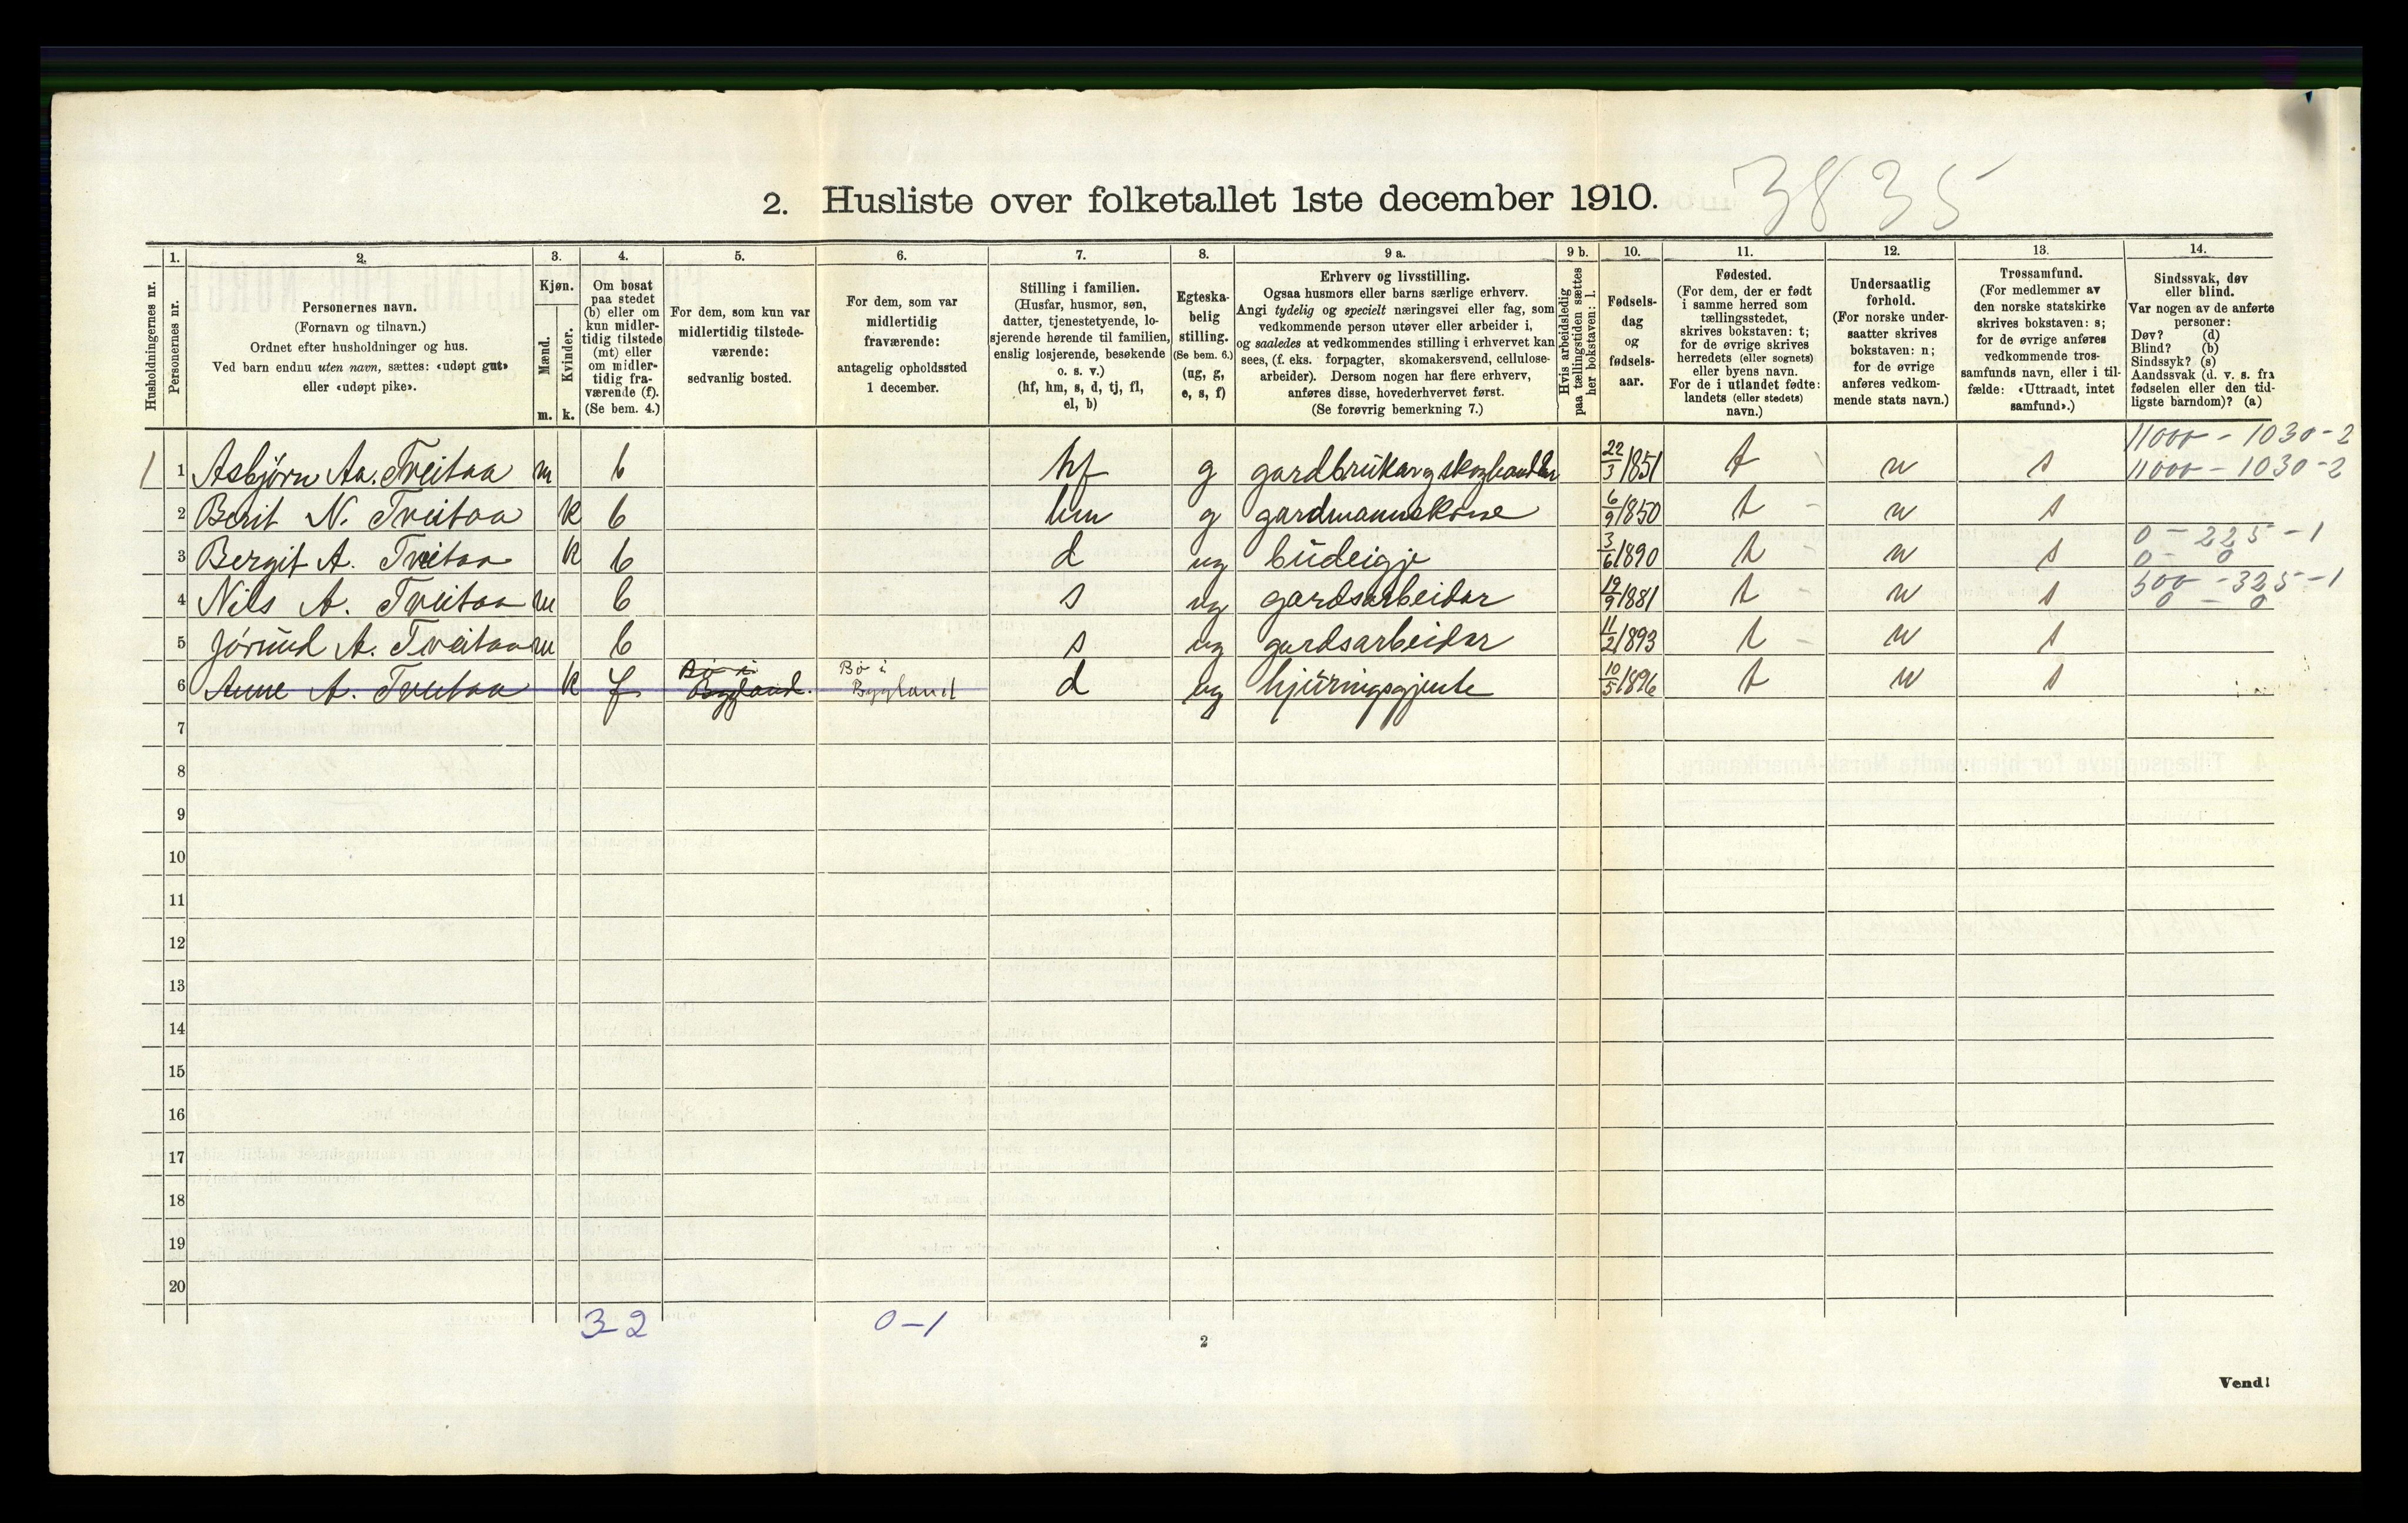 3835
2. Husliste over folketallet 1ste december 1910.
Husholdningernes nr.
1. Personernes nr.
2. Personernes navn.
(Fornavn og tilnavn.)
Ordnet efter husholdninger og hus.
Ved barn endnu uten navn, sættes: «udøpt gut»
eller «udøpt pike».
3. Kjøn.
Mænd. m.
Kvinder. k.
4. Om bosat
paa stedet
(b) eller om
kun midler-
tidig tilstede
(mt) eller
om midler-
tidig fra-
værende (f).
(Se bem. 4.)
5. For dem, som kun var
midlertidig tilstede-
værende:
sedvanlig bosted.
6. For dem, som var
midlertidig
fraværende:
antagelig opholdssted
1 december.
7. Stilling i familien.
(Husfar, husmor, søn,
datter, tjenestetyende, lo-
sjerende hørende til familien,
enslig losjerende, besøkende
o. s. v.)
(hf, hm, s, d, tj, fl,
el, b)
8. Egteska-
belig
stilling.
(Se bem. 6.)
(ug, g,
e, s, f)
9 a. Erhverv og livsstilling.
Ogsaa husmors eller barns særlige erhverv.
Angi tydelig og specielt næringsvei eller fag, som
vedkommende person utøver eller arbeider i,
og saaledes at vedkommendes stilling i erhvervet kan
sees, (f. eks. forpagter, skomakersvend, cellulose-
arbeider). Dersom nogen har flere erhverv,
anføres disse, hovederhvervet først.
(Se forøvrig bemerkning 7.)
9 b. Hvis arbeidsledig
paa tællingstiden sættes
her bokstaven: l.
10. Fødsels-
dag
og
fødsels-
aar.
11. Fødested.
(For dem, der er født
i samme herred som
tællingsstedet,
skrives bokstaven: t;
for de øvrige skrives
herredets (eller sognets)
eller byens navn.
For de i utlandet fødte:
landets (eller stedets)
navn.)
12. Undersaatlig
forhold.
(For norske under-
saatter skrives
bokstaven: n;
for de øvrige
anføres vedkom-
mende stats navn.)
13. Trossamfund.
(For medlemmer av
den norske statskirke
skrives bokstaven: s;
for de øvrige anføres
vedkommende tros-
samfunds navn, eller i til-
fælde: «Uttraadt, intet
samfund».)
14. Sindssvak, døv
eller blind.
Var nogen av de anførte
personer:
Døv? (d)
Blind? (b)
Sindssyk? (s)
Aandssvak (d. v. s. fra
fødselen eller den tid-
ligste barndom)? (a)
11000 - 1030 - 2
1 1 Asbjørn Aa. Tveitaa m b hf g gardbrukar og skoghandlar 22/3 1851 t n s 11000 - 1030 - 2
2 Berit N. Tveitaa k b hm g gardmannskone 6/9 1850 t n s
0 - 225 - 1
3 Bergit A. Tveitaa k b d ug budeigje 3/6 1890 t n s 0 - 0
500 - 325 - 1
4 Nils A. Tveitaa m b s ug gardsarbeidar 19/9 1881 t n s 0 - 0
5 Jórund A. Tveitaa m b s ug gardsarbeidar 11/2 1893 t n s
Bø i Bø i
6 Anne A. Tveitaa k f Bygland. Bygland d ug hjuringsgjente 10/5 1896 t n s
7
8
9
10
11
12
13
14
15
16
17
18
19
20
3-2 0-1
2
Vend!